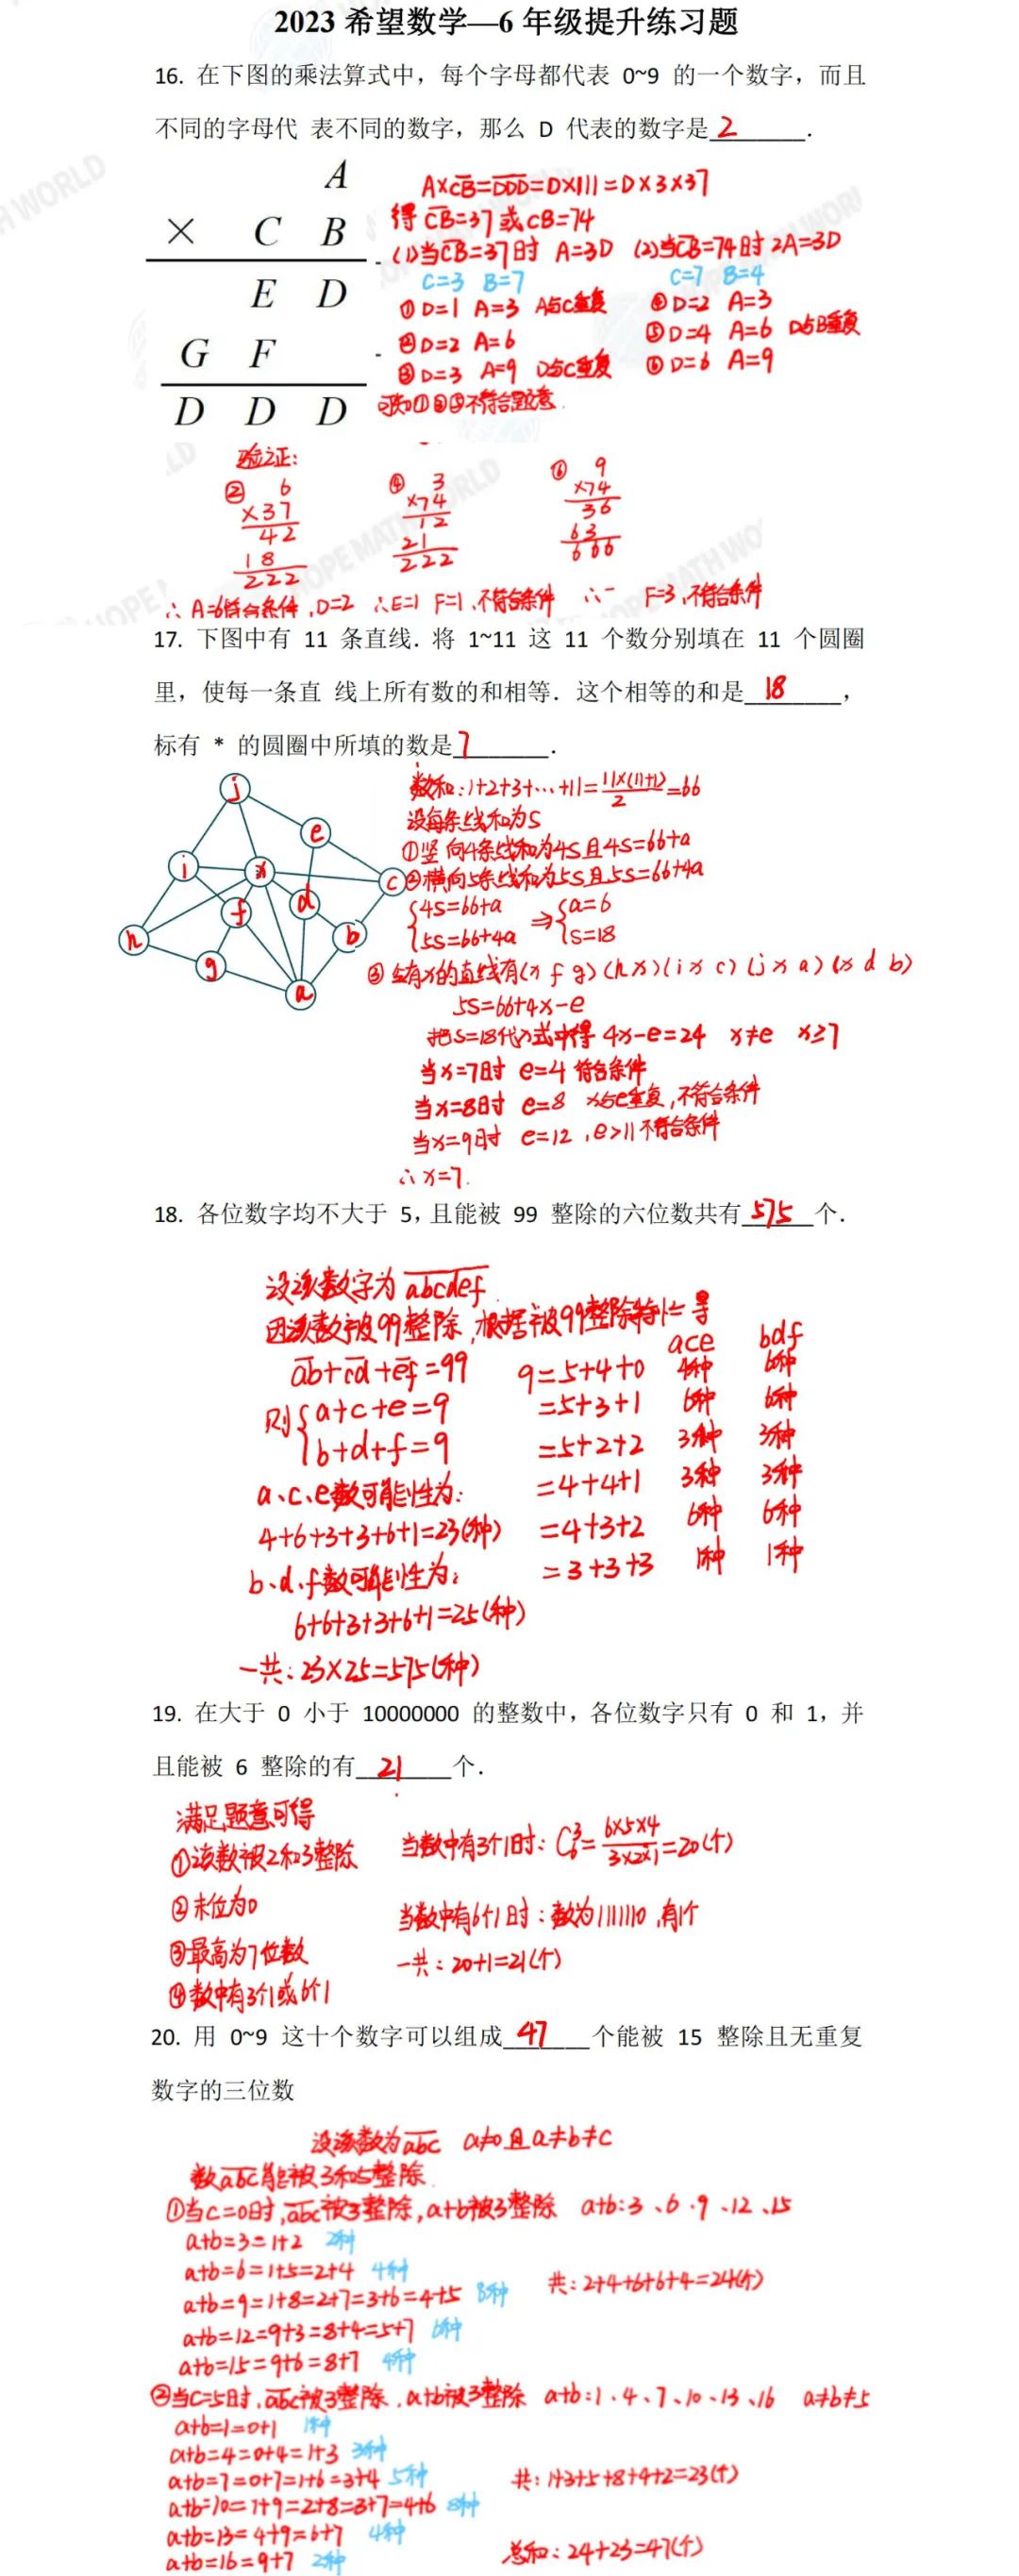 2023 希望数学—6 年级提升练习题
16. 在下图的乘法算式中，每个字母都代表 0~9 的一个数字，而且
不同的字母代 表不同的数字，那么 D 代表的数字是 2 .
A
× C B
E D
G F
D D D
A×CB=DDD=D×111=D×3×37
得 CB=37 或 CB=74
(1)当CB=37时 A=3D (2)当CB=74时 2A=3D
C=3 B=7 C=7 B=4
①D=1 A=3 A与C重复 ④D=2 A=3
②D=2 A=6 ⑤D=4 A=6 D与B重复
③D=3 A=9 D与C重复 ⑥D=6 A=9
可知①③⑤不符合题意.
验证:
② 6 ④ 3 ⑥ 9
×37 ×74 ×74
42 12 36
18 21 63
222 222 666
∴A=6符合条件,D=2 ∴E=1 F=1,不符合条件 ∴ F=3,不符合条件
17. 下图中有 11 条直线. 将 1~11 这 11 个数分别填在 11 个圆圈
里，使每一条直 线上所有数的和相等. 这个相等的和是 18 ，
标有 * 的圆圈中所填的数是 7 .
j
e
i
x
c
f
d
h
b
g
a
数和:1+2+3+…+11=11×(11+1)/2=66
设每条线和为S
①竖向4条线和为4S且4S=66+a
②横向5条线和为5S且5S=66+4a
{4S=66+a ⇒ {a=6
5S=66+4a S=18
③含有x的直线有(x f g)(h x)(i x c)(j x a)(x d b)
5S=66+4x-e
把S=18代入式中得 4x-e=24 x≠e x≥7
当x=7时 e=4 符合条件
当x=8时 e=8 x与e重复,不符合条件
当x=9时 e=12,e>11不符合条件
∴x=7.
18. 各位数字均不大于 5，且能被 99 整除的六位数共有 575 个.
设该数字为abcdef
因该数字被99整除,根据被99整除特性得
ace bdf
ab+cd+ef=99 9=5+4+0 4种 6种
则{a+c+e=9 =5+3+1 6种 6种
b+d+f=9 =5+2+2 3种 3种
a、c、e数可能性为: =4+4+1 3种 3种
4+6+3+3+6+1=23(种) =4+3+2 6种 6种
b、d、f数可能性为: =3+3+3 1种 1种
6+6+3+3+6+1=25(种)
一共:23×25=575(种)
19. 在大于 0 小于 10000000 的整数中，各位数字只有 0 和 1，并
且能被 6 整除的有 21 个.
满足题意可得
①该数被2和3整除 当数中有3个1时: C₆³=6×5×4/3×2×1=20(个)
②末位为0 当数中有6个1时:数为1111110,有1个
③最高为7位数 一共:20+1=21(个)
④数中有3个1或6个1
20. 用 0~9 这十个数字可以组成 47 个能被 15 整除且无重复
数字的三位数
设该数为abc a≠0且a≠b≠c
数abc能被3和5整除
①当c=0时,abc被3整除,a+b被3整除 a+b:3、6、9、12、15
a+b=3=1+2 2种
a+b=6=1+5=2+4 4种
a+b=9=1+8=2+7=3+6=4+5 8种 共:2+4+6+6+4=24(个)
a+b=12=9+3=8+4=5+7 6种
a+b=15=9+6=8+7 4种
②当C=5时,abc被3整除,a+b被3整除 a+b:1、4、7、10、13、16 a≠b≠5
a+b=1=0+1 1种
a+b=4=0+4=1+3 3种
a+b=7=0+7=1+6=3+4 5种 共:1+3+5+8+4+2=23(个)
a+b=10=1+9=2+8=3+7=4+6 8种
a+b=13=4+9=6+7 4种
a+b=16=9+7 2种 总和:24+23=47(个)